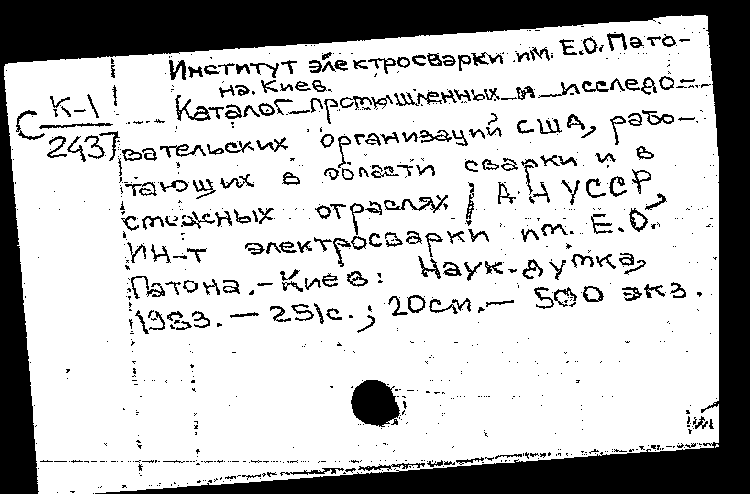 Институт электросварки им. Е.О. Пато-
на. Киев.
С К-1
2437
Каталог промышленных и исследо-
вательских организаций США, рабо-
тающих в области сварки и в
смежных отраслях / АН УССР,
Ин-т электросварки им. Е.О.
Патона. - Киев: Наук. думка,
1983. - 251с.; 20см. - 500 экз.